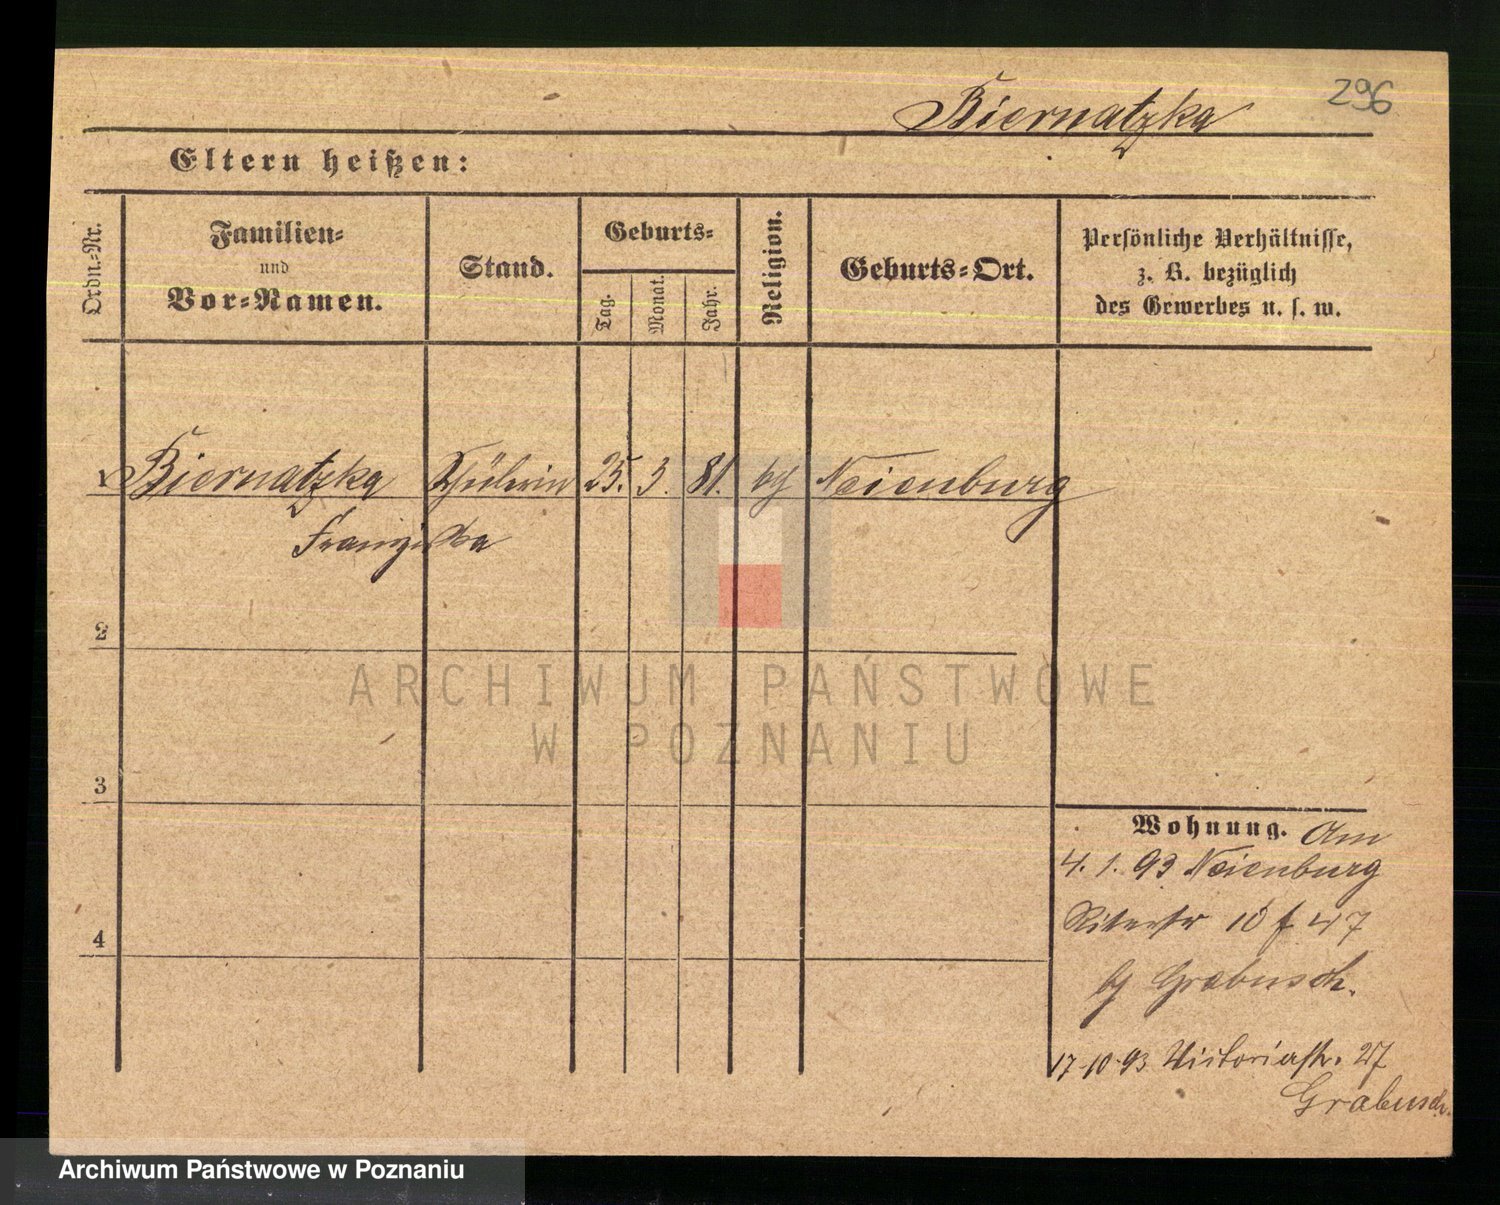 296
Biernatzka
Eltern heißen:
Ordn.-Nr.
Familien-
und
Vor-Namen.
Stand.
Geburts-
Tag.
Monat.
Jahr.
Religion.
Geburts-Ort.
Persönliche Verhältnisse,
z. B. bezüglich
des Gewerbes u. s. w.
Biernatzka Schülerin 25. 3. 81. Neienburg
Franziska
2
ARCHIWUM PAŃSTWOWE
W POZNANIU
3
Wohnung. Am
4. 1. 93 Neienburg
10
4
Grabusch.
17.10.93 Victoriastr. 27
Grabusch.
Archiwum Państwowe w Poznaniu